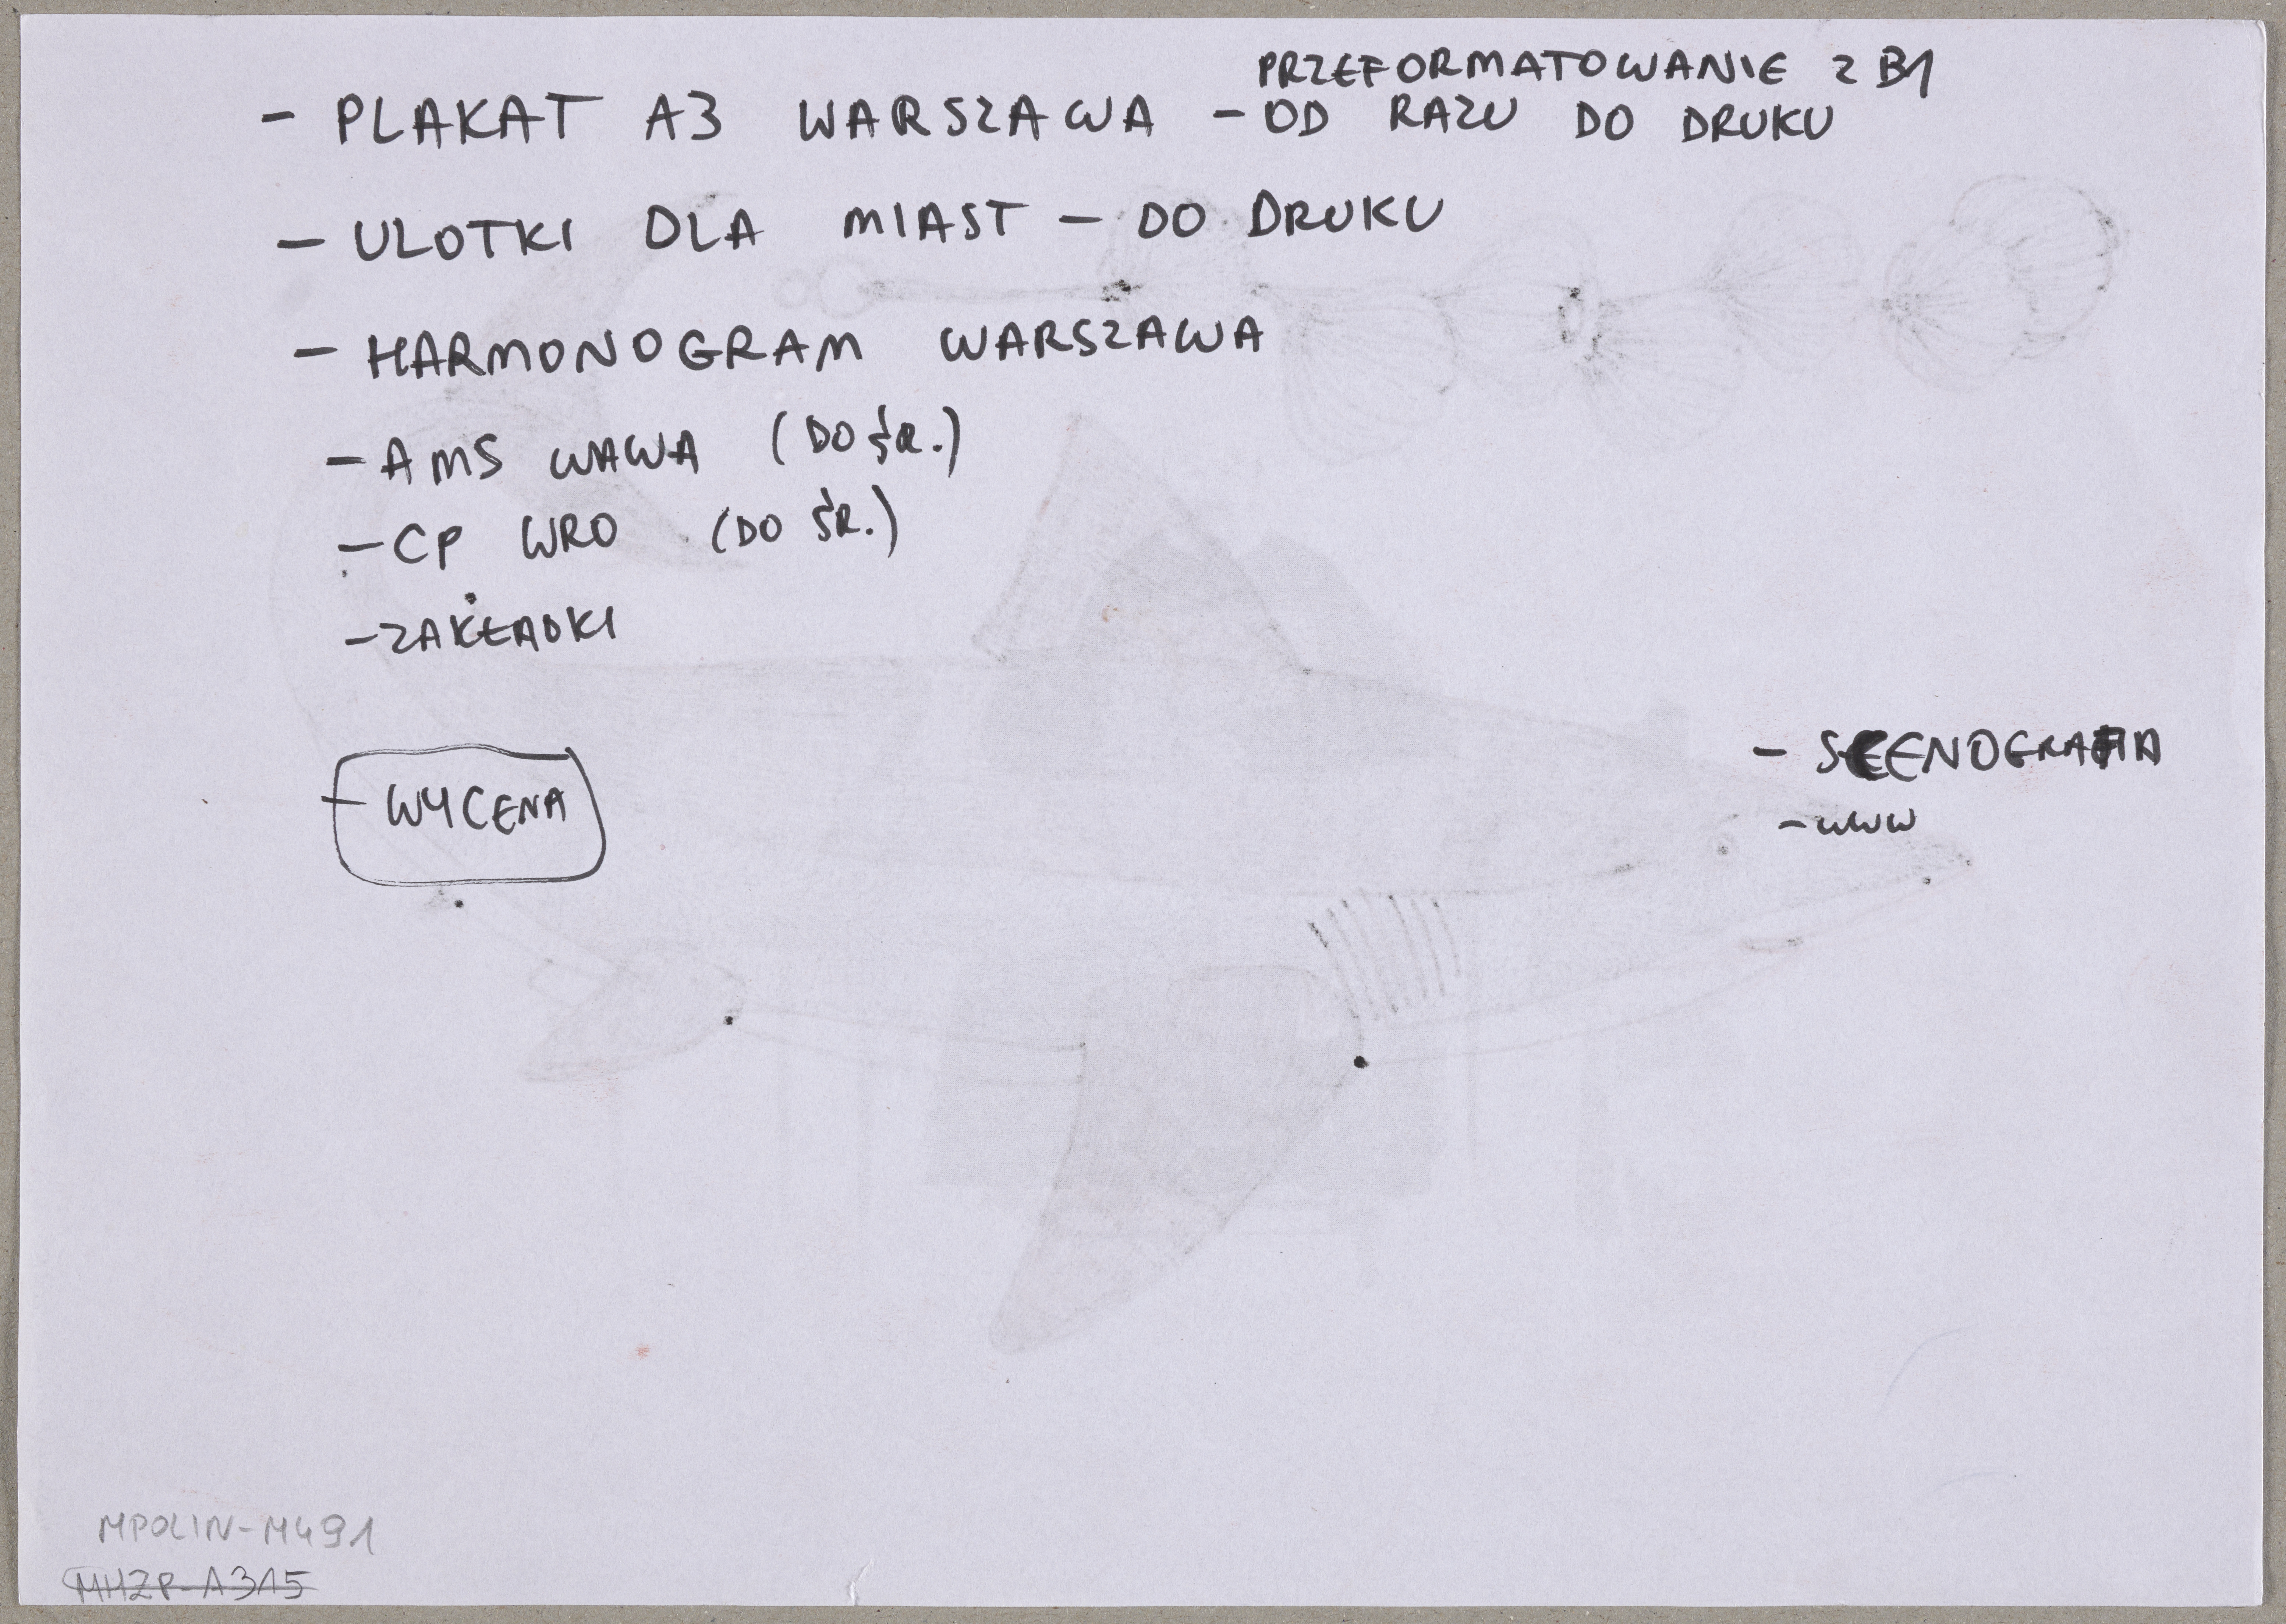 PRZEFORMATOWANIE Z B1
- PLAKAT A3 WARSZAWA - OD RAZU DO DRUKU
- ULOTKI DLA MIAST - DO DRUKU
- HARMONOGRAM WARSZAWA
- AMS WAWA (DO ŚR.)
- CP WRO (DO ŚR.)
- ZAKŁADKI
- WYCENA
- SCENOGRAFIA
- WWW
MPOLIN-M491
MHZP-A315